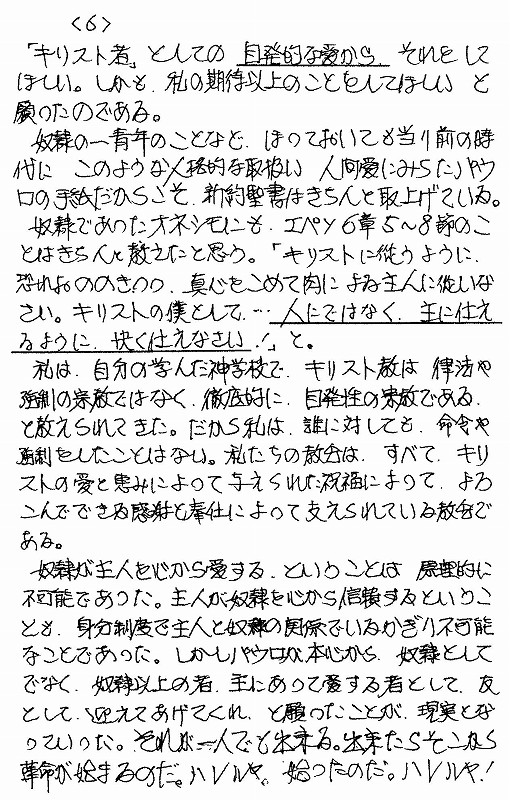 <6>
「キリスト者」としての 自発的な愛から それをして
ほしい。しかも、私の期待以上のことをしてほしい と
願ったのである。
奴隷の一青年のことなど、ほっておいても当り前の時
代に このような人格的な取扱い 人間愛にみちたパウ
ロの手紙だからこそ、新約聖書はきちんと取上げている。
奴隷であったオネシモにも、エペソ6章5～8節のこ
とばきちんと教えたと思う。「キリストに従うように、
恐れおののきつつ、真心をこめて肉による主人に従いな
さい。キリストの僕として、… 人にではなく、主に仕え
るように、快く仕えなさい、!」と。
私は、自分の学んだ神学校で、キリスト教は 律法や
強制の宗教ではなく、徹底的に、自発性の宗教である、
と教えられてきた。だから私は、誰に対しても、命令や
強制をしたことはない。私たちの教会は、すべて、キリ
ストの愛と恵みによって与えられた祝福によって、よろ
こんでできる感謝と奉仕によって支えられている教会で
ある。
奴隷が主人を心から愛する、ということは 原理的に
不可能であった。主人が奴隷を心から信頼するというこ
とも、身分制度で主人と奴隷の関係でいるかぎり不可能
なことであった。しかしパウロが本心から、奴隷として
でなく、奴隷以上の者、主にあって愛する者として、友
として、迎えてあげてくれ、と願ったことが、現実とな
っていった。それが一人でも出来る。出来たらそこから
革命が始まるのだ。ハレルヤ。始ったのだ。ハレルヤ!